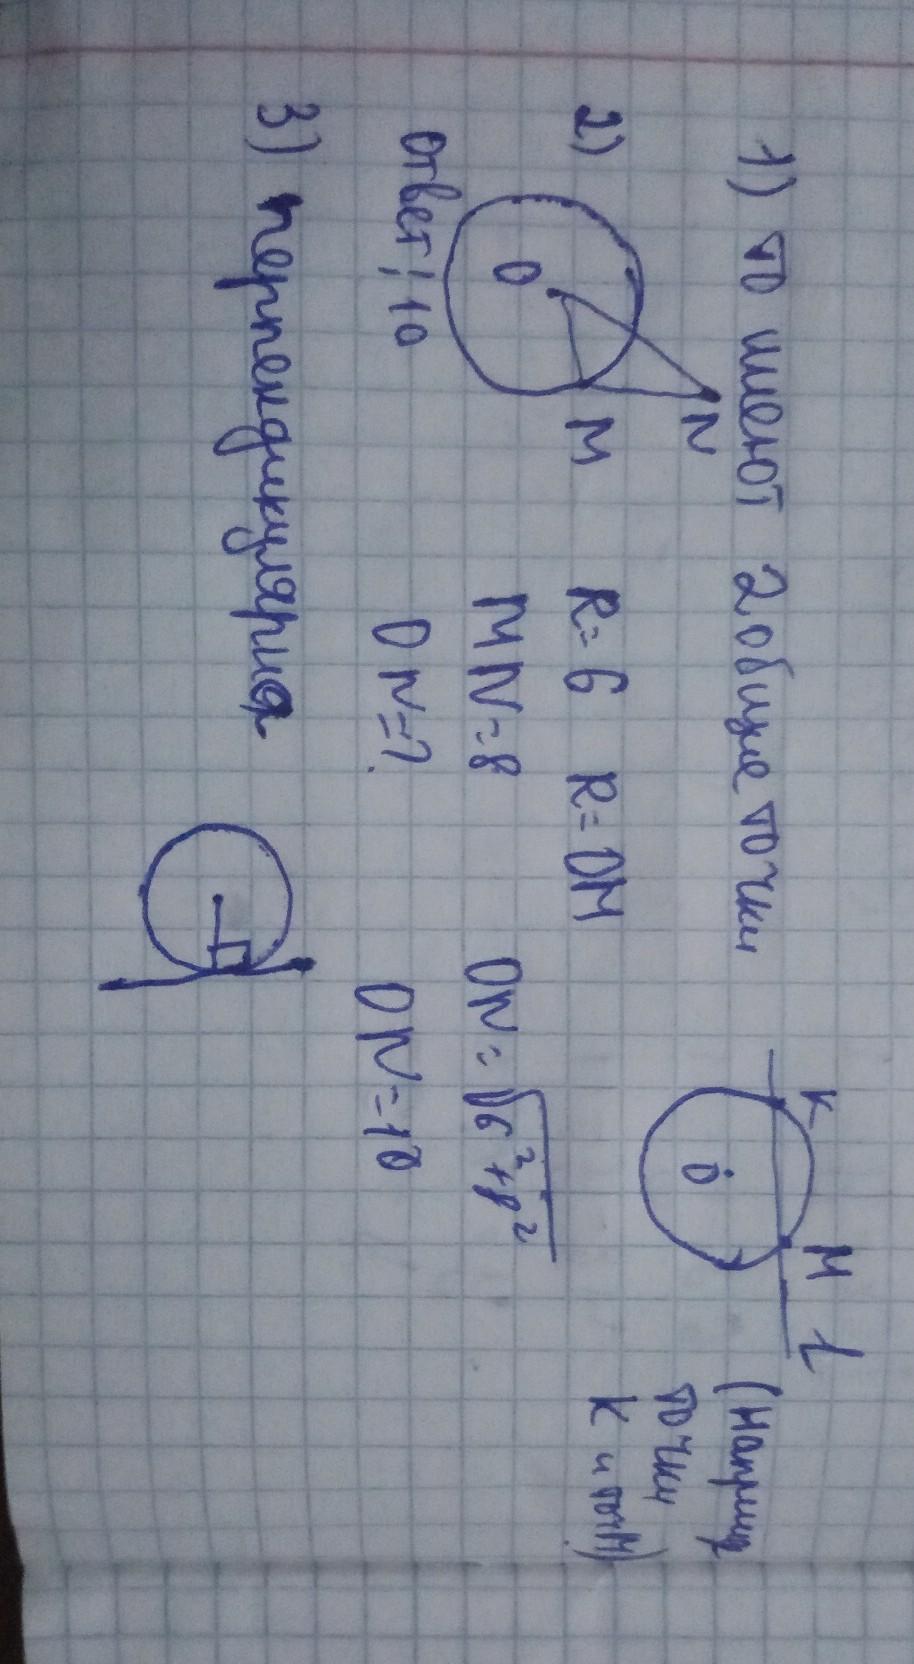 1) то имеют 2 общие точки
K
M
L
O
(например
точки
K и точ M)
2)
O
N
M
R=6 R=OM
MN=8
ON=?
ON=√6²+8²
ON=10
ответ: 10
3) перпендикулярна